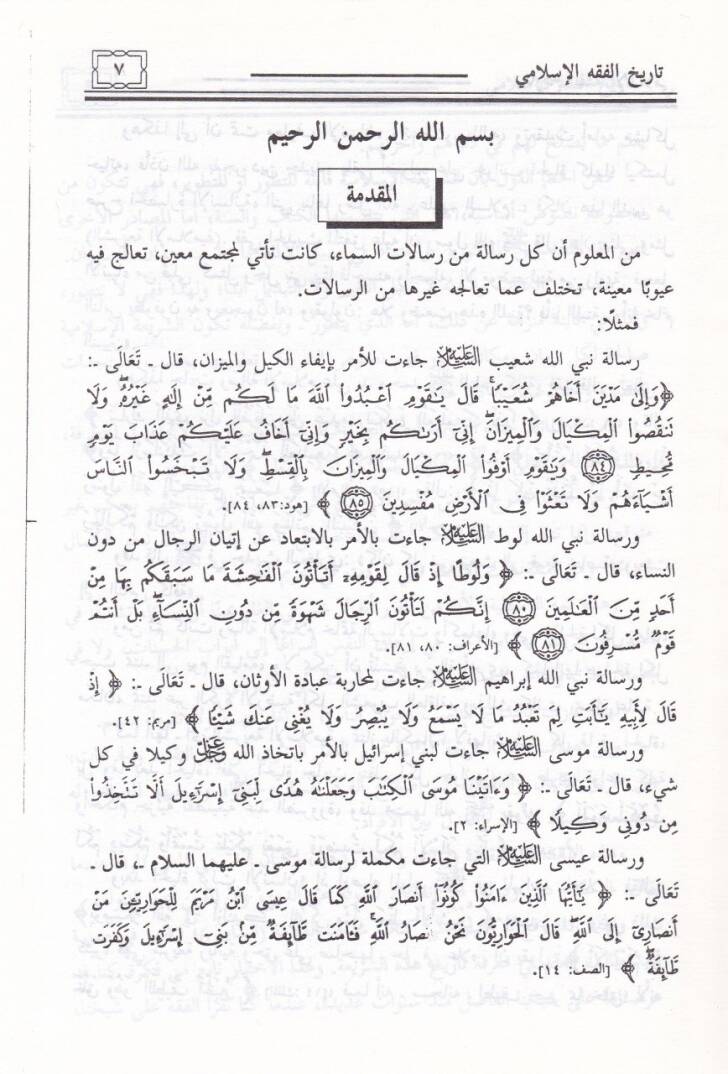 تاريخ الفقه الإسلامي ٧
بسم الله الرحمن الرحيم
المقدمة
من المعلوم أن كل رسالة من رسالات السماء، كانت تأتي لمجتمع معين، تعالج فيه
عيوبًا معينة، تختلف عما تعالجه غيرها من الرسالات.
فمثلًا:
رسالة نبي الله شعيب عليه السلام جاءت للأمر بإيفاء الكيل والميزان، قال ـ تَعَالَى ـ:
﴿وَإِلَىٰ مَدْيَنَ أَخَاهُمْ شُعَيْبًا ۚ قَالَ يَـٰقَوْمِ ٱعْبُدُوا۟ ٱللَّهَ مَا لَكُم مِّنْ إِلَـٰهٍ غَيْرُهُۥ ۖ وَلَا
تَنقُصُوا۟ ٱلْمِكْيَالَ وَٱلْمِيزَانَ ۚ إِنِّىٓ أَرَىٰكُم بِخَيْرٍ وَإِنِّىٓ أَخَافُ عَلَيْكُمْ عَذَابَ يَوْمٍ
مُّحِيطٍ ﴿٨٤﴾ وَيَـٰقَوْمِ أَوْفُوا۟ ٱلْمِكْيَالَ وَٱلْمِيزَانَ بِٱلْقِسْطِ ۖ وَلَا تَبْخَسُوا۟ ٱلنَّاسَ
أَشْيَآءَهُمْ وَلَا تَعْثَوْا۟ فِى ٱلْأَرْضِ مُفْسِدِينَ ﴿٨٥﴾ ﴾ [هود: ٨٣، ٨٤].
ورسالة نبي الله لوط عليه السلام جاءت بالأمر بالابتعاد عن إتيان الرجال من دون
النساء، قال ـ تَعَالَى ـ: ﴿ وَلُوطًا إِذْ قَالَ لِقَوْمِهِۦٓ أَتَأْتُونَ ٱلْفَـٰحِشَةَ مَا سَبَقَكُم بِهَا مِنْ
أَحَدٍ مِّنَ ٱلْعَـٰلَمِينَ ﴿٨٠﴾ إِنَّكُمْ لَتَأْتُونَ ٱلرِّجَالَ شَهْوَةً مِّن دُونِ ٱلنِّسَآءِ ۚ بَلْ أَنتُمْ
قَوْمٌ مُّسْرِفُونَ ﴿٨١﴾ ﴾ [الأعراف: ٨٠، ٨١].
ورسالة نبي الله إبراهيم عليه السلام جاءت لمحاربة عبادة الأوثان، قال ـ تَعَالَى ـ: ﴿ إِذْ
قَالَ لِأَبِيهِ يَـٰٓأَبَتِ لِمَ تَعْبُدُ مَا لَا يَسْمَعُ وَلَا يُبْصِرُ وَلَا يُغْنِى عَنكَ شَيْـًٔا ﴾ [مريم: ٤٢].
ورسالة موسى عليه السلام جاءت لبني إسرائيل بالأمر باتخاذ الله عز وجل وكيلا في كل
شيء، قال ـ تَعَالَى ـ: ﴿ وَءَاتَيْنَا مُوسَى ٱلْكِتَـٰبَ وَجَعَلْنَـٰهُ هُدًى لِّبَنِىٓ إِسْرَٰٓءِيلَ أَلَّا تَتَّخِذُوا۟
مِن دُونِى وَكِيلًا ﴾ [الإسراء: ٢].
ورسالة عيسى عليه السلام التي جاءت مكملة لرسالة موسى ـ عليهما السلام ـ، قال ـ
تَعَالَى ـ: ﴿ يَـٰٓأَيُّهَا ٱلَّذِينَ ءَامَنُوا۟ كُونُوٓا۟ أَنصَارَ ٱللَّهِ كَمَا قَالَ عِيسَى ٱبْنُ مَرْيَمَ لِلْحَوَارِيِّـۧنَ مَنْ
أَنصَارِىٓ إِلَى ٱللَّهِ ۖ قَالَ ٱلْحَوَارِيُّونَ نَحْنُ أَنصَارُ ٱللَّهِ ۖ فَـَٔامَنَت طَّآئِفَةٌ مِّنۢ بَنِىٓ إِسْرَٰٓءِيلَ وَكَفَرَت
طَّآئِفَةٌ ﴾ [الصف: ١٤].